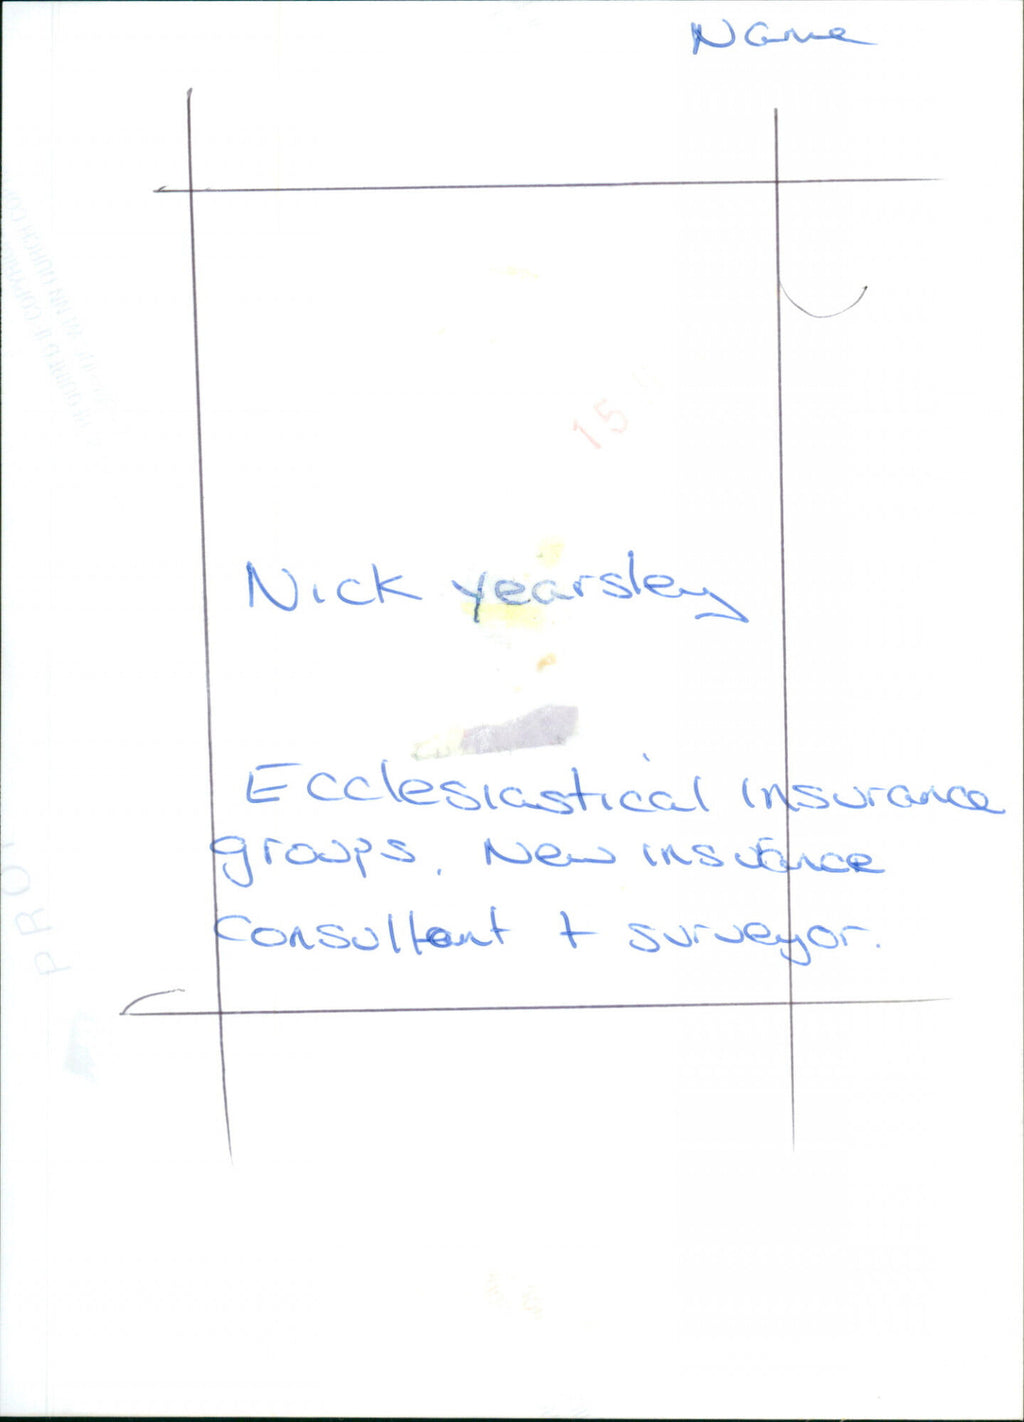 Name
15
Nick Yearsley
Ecclesiastical insurance
groups. New insurance
consultant + surveyor.